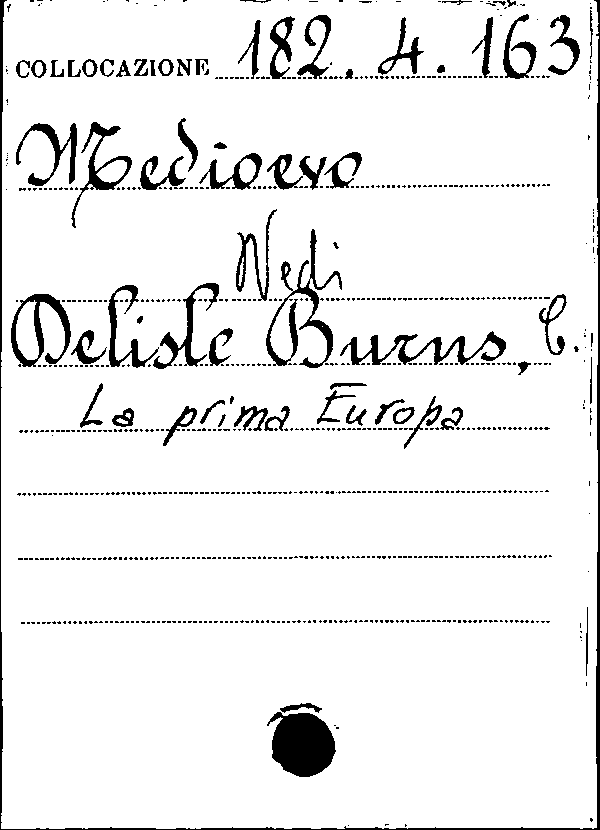 COLLOCAZIONE 182.4.163
Medioevo
Vedi
Delisle Burns, C.
La prima Europa